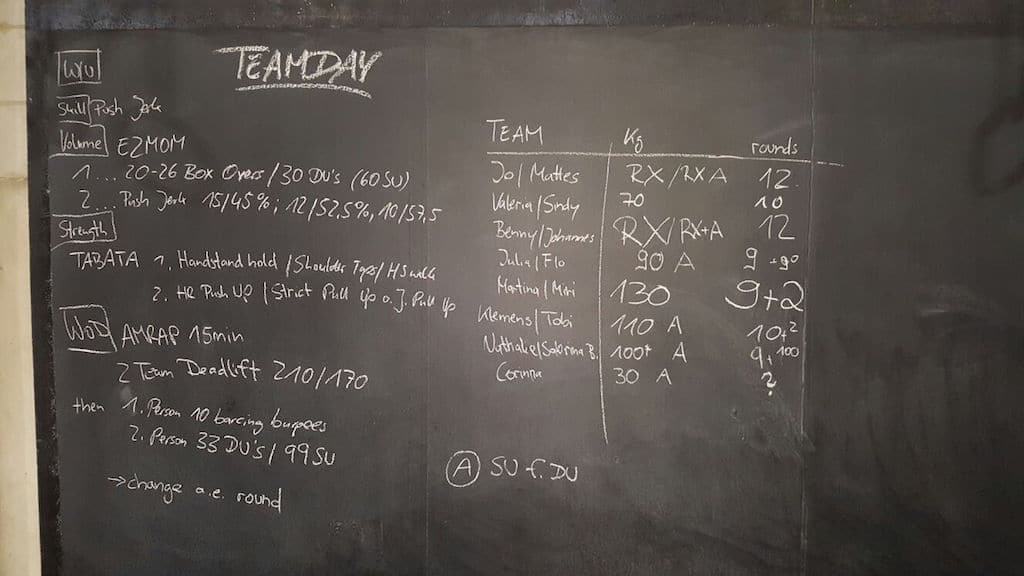 TEAMDAY
W/U
Skill Push Jerk
Volume E2MOM
1... 20-26 Box Overs / 30 DU's (60 SU)
2... Push Jerk 15/45%; 12/52,5%, 10/57,5
Strength
TABATA 1. Handstand hold / Shoulder Taps / HS walk
2. HR Push Up / Strict Pull Up o. J. Pull Up
WOD AMRAP 15min
2 Team Deadlift 210/170
then 1. Person 10 barcing burpees
2. Person 33 DU's / 99 SU
→ change a.e. round
TEAM Kg rounds
Jo / Mattes RX / RX A 12
Valeria / Sindy 70 10
Benny / Johannes RX / RX+A 12
Julia / Flo 90 A 9 +90
Martina / Miri 130 9+2
Klemens / Tobi 110 A 10+2
Nathalie / Sabrina B. 100+ A 9, 100
Corinna 30 A ?
A SU f. DU